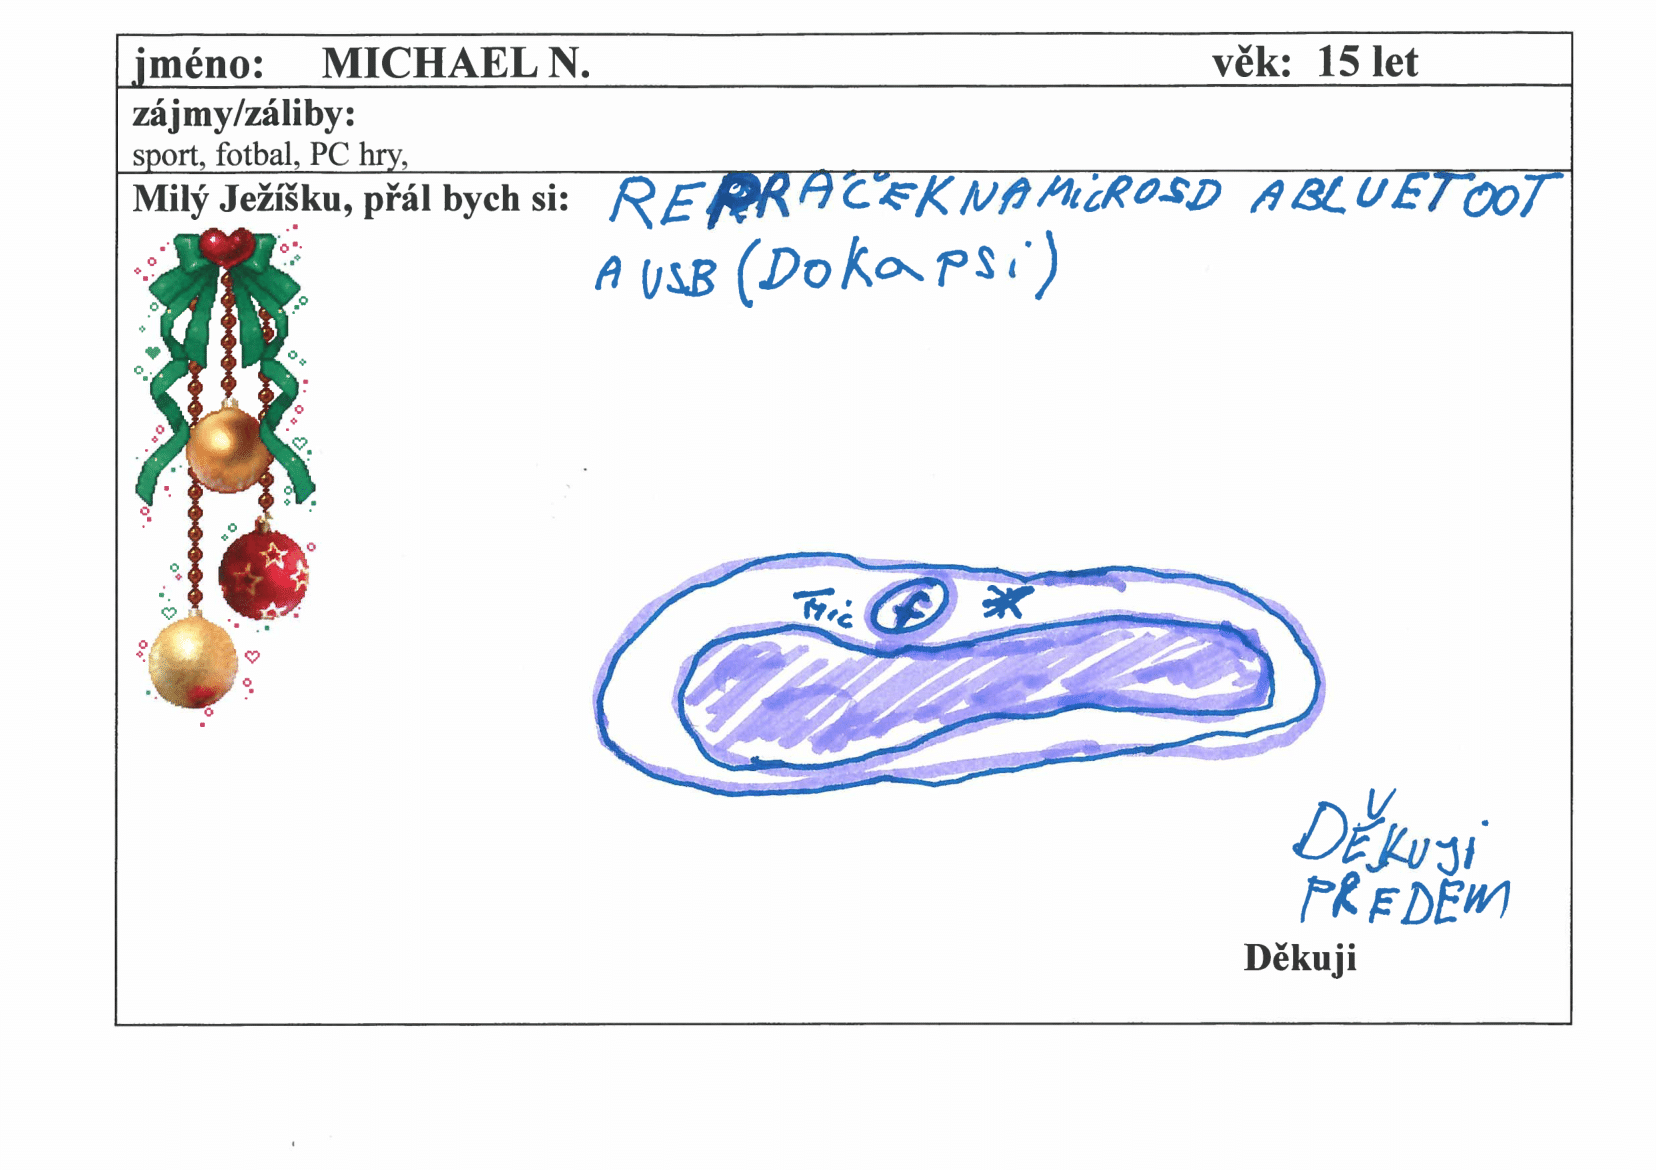 jméno: MICHAEL N. věk: 15 let
zájmy/záliby:
sport, fotbal, PC hry,
Milý Ježíšku, přál bych si: REPRÁČEK NA MiCROSD A BLUETOOT
A USB (DO KAPSi)
f
DĚKUJi
PŘEDEM
Děkuji